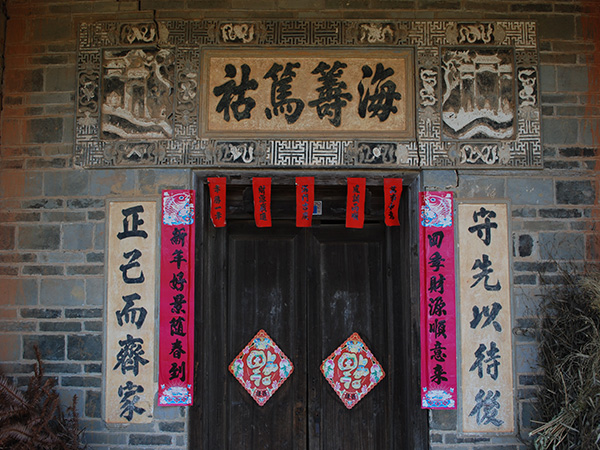 海籌篤祜
守先以待後
四季財源順意來
新年好景隨春到
正己而齊家
福
福